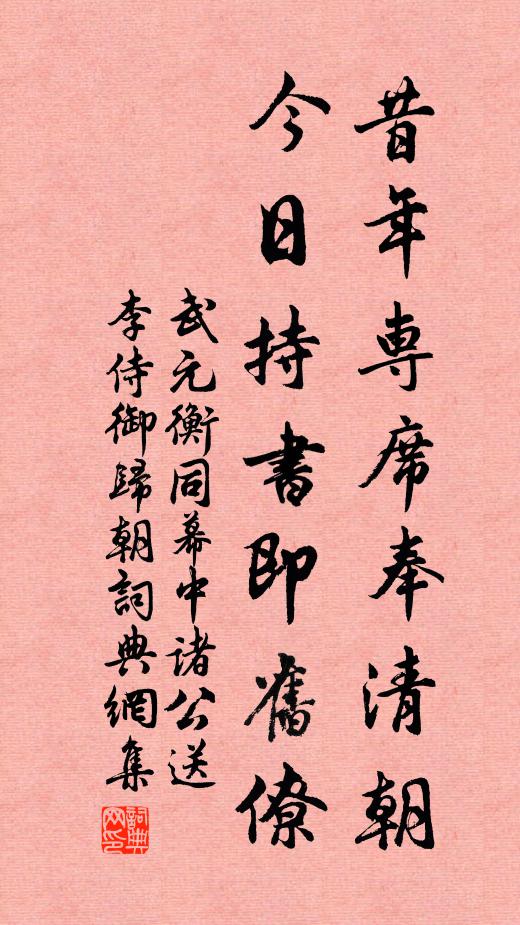 昔年専席奉清朝
今日持書即舊僚
武元衡同幕中諸公送
李侍御歸朝詞典網集
詞典网印